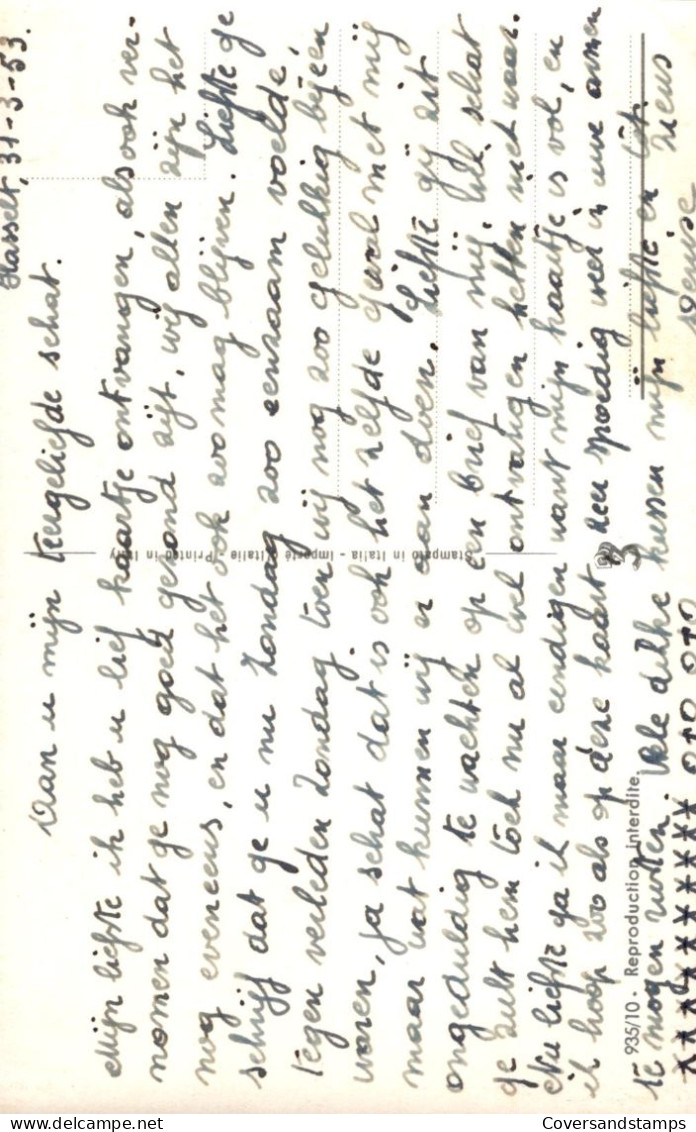 Hasselt, 31-3-53.
Aan u mijn teergeliefde schat.
Mijn liefste ik heb u lief kaartje ontvangen, als ook ver-
nomen dat ge nog goed gezond zijt, wij allen zijn het
nog eveneens, en dat het ook zoo mag blijven. Liefste ge
schrijf dat ge u nu Zondag zoo eenzaam voelde,
tegen verleden Zondag toen wij nog zoo gelukkig bijeen
waren, ja schat dat is ook het zelfde geval met mij
maar wat kunnen wij er aan doen. Liefste gij zit
ongeduldig te wachten op een brief van mij, wel schat
ge zult hem toch nu al wel ontvangen hebben niet waar.
Nu liefste ga ik maar eindigen want mijn kaartje is vol, en
ik hoop zoo als op deze kaart zeer spoedig weer in uwe armen
te mogen rusten. Vele dikke kussen mijn liefste en tot
ziens
xxxxxxxxx
Stampato in Italia - Importé d'Italie - Printed in Italy
935/10 - Reproduction Interdite.
CoversandStamps
delcampe.net